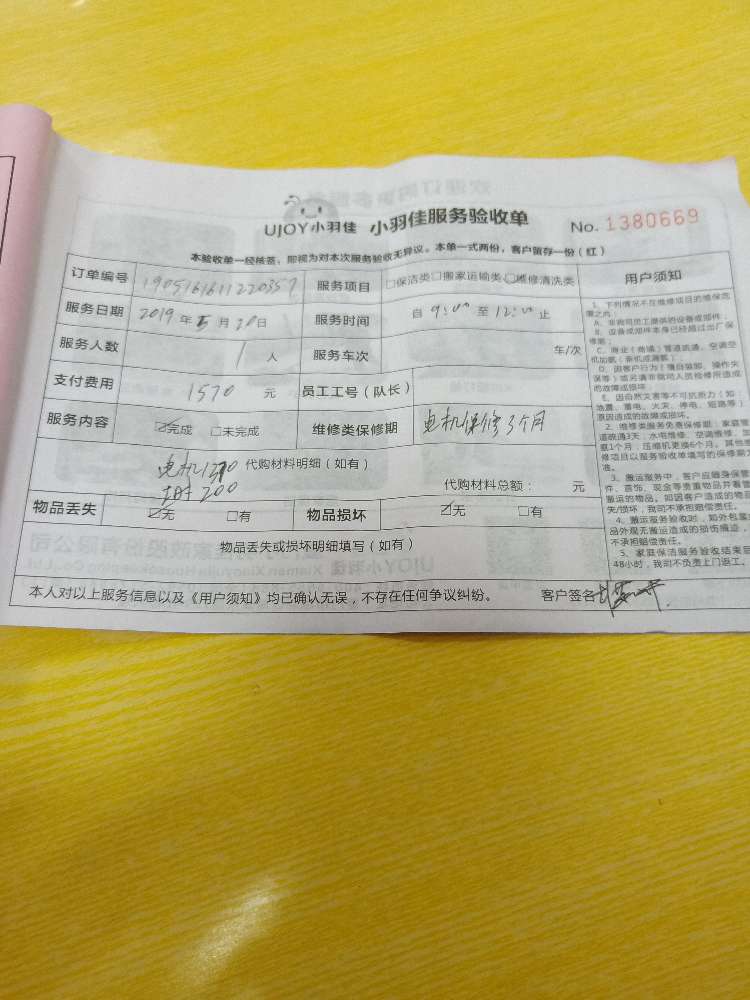 UJOY小羽佳 小羽佳服务验收单 No. 1380669
本验收单一经核签，即视为对本次服务验收无异议。本单一式两份，客户留存一份（红）
订单编号 服务项目 □保洁类□搬家运输类☑维修清洗类
服务日期 2019 年 5 月 20 日 服务时间 自 9:00 至 12:00 止
服务人数 1 人 服务车次 车/次
支付费用 1570 元 员工工号（队长）
服务内容 ☑完成 □未完成 维修类保修期 电机保修3个月
电机
代购材料明细（如有） 代购材料总额： 元
200
物品丢失 ☑无 □有 物品损坏 ☑无 □有
物品丢失或损坏明细填写（如有）
本人对以上服务信息以及《用户须知》均已确认无误，不存在任何争议纠纷。 客户签名
用户须知
1、下列情况不在维修项目的维保范
围之内：
A、非我司员工提供的设备或部件；
B、设备或部件本身已经超过出厂保
修期；
C、商业（商铺）管道疏通、空调空
D、因客户行为（擅自装卸、操作失
误等）或另请非我司人员检修所造成
的故障或损坏
E、因自然灾害等不可抗质力（如：
地震、雷电、火灾、停电、短路等）
原因造成的故障或损坏。
2、维修类服务免费保修期：家庭管
道疏通3天，水电维修、空调维修、加
氨1个月，压缩机更换6个月。其他维
修项目以服务验收单填写的保修期为
准。
3、搬运服务中，客户应随身保管
件、首饰、现金等贵重物品并看管
搬运的物品。如因客户造成的物品
失/损坏，我司不承担赔偿责任。
4、搬运服务验收时，如外包装
品外观无搬运造成的损伤痕迹，
不承担赔偿责任。
5、家庭保洁服务验收结束后
48小时，我司不负责上门返工。